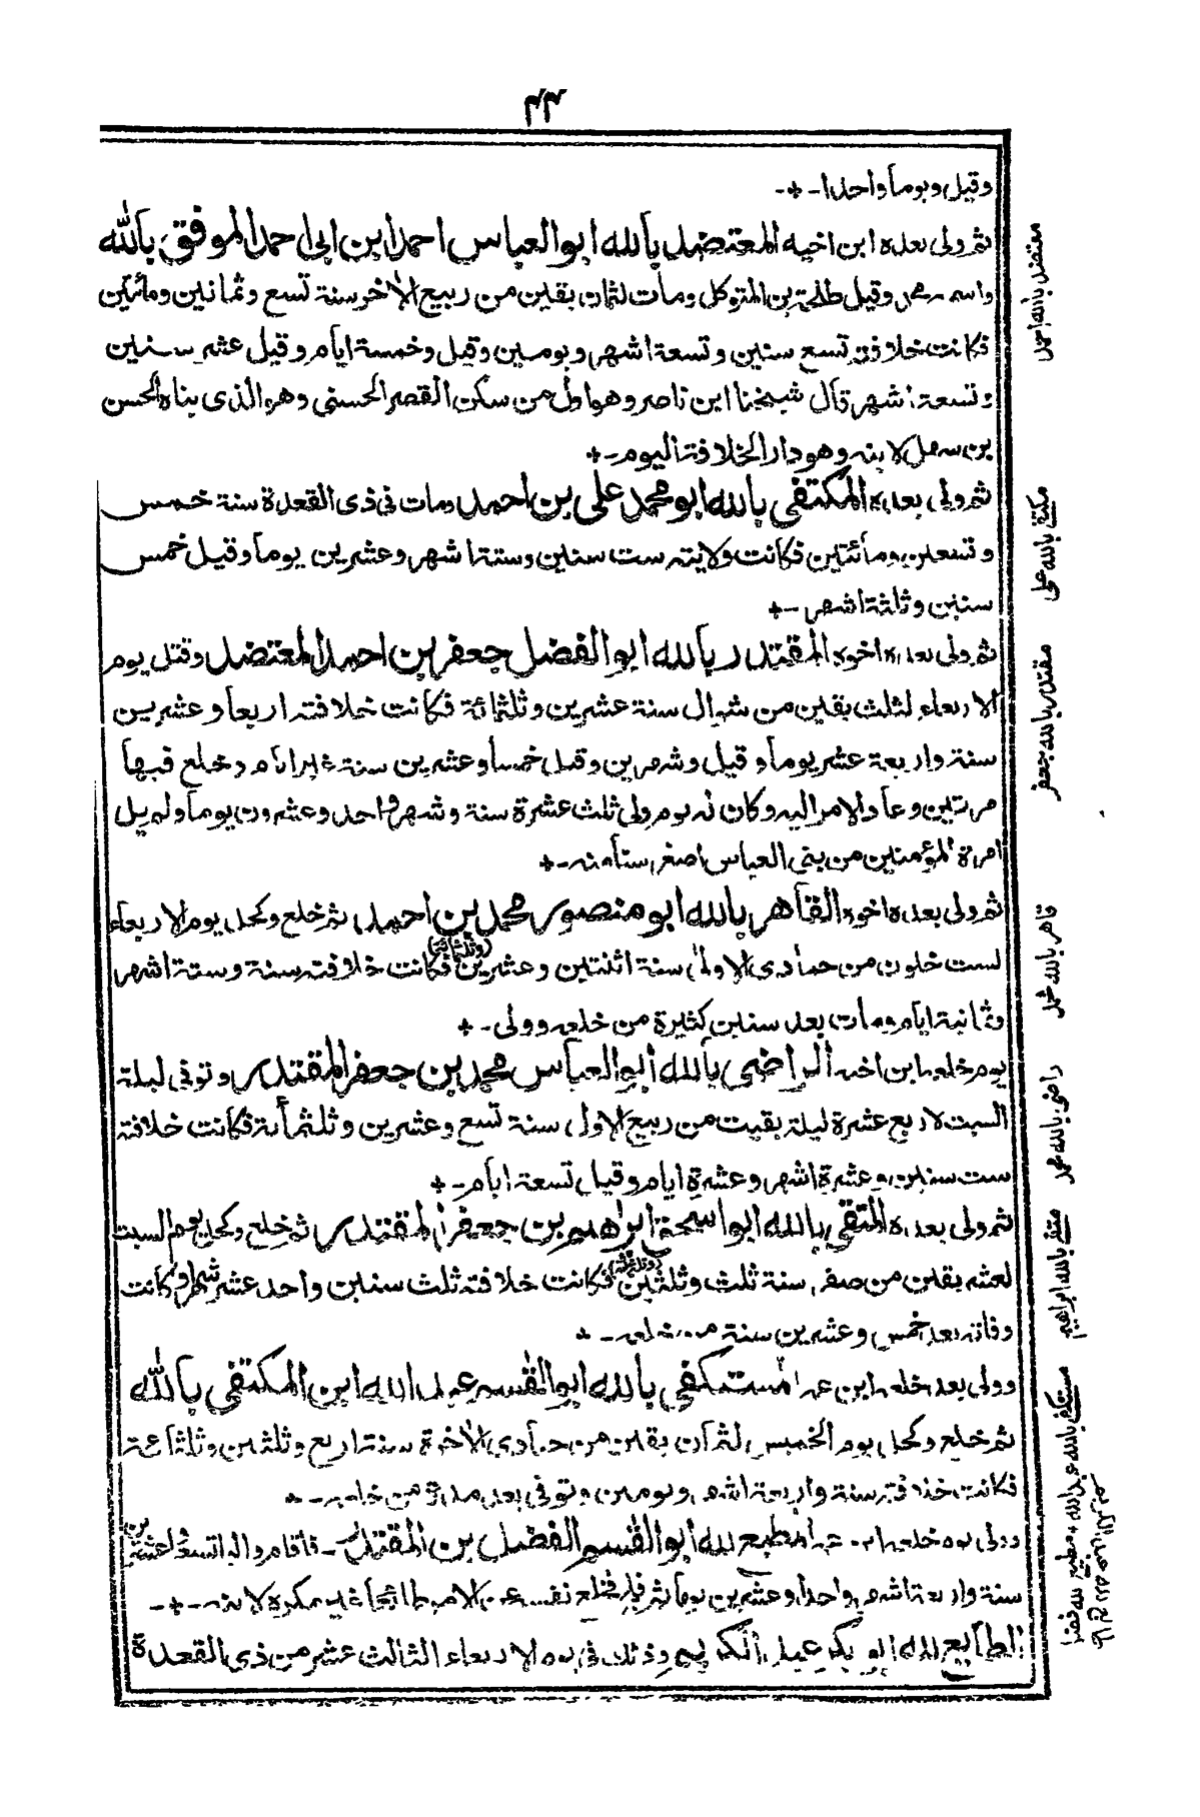 ٤٣
وقيل ويوماً واحدا -٠-
ثم ولى بعده ابن اخيه المعتضد بالله ابوالعباس احمد ابن ابى احمد الموفق بالله
واسمه محمد وقيل طلحة بن المتوكل ومات لثمان بقين من ربيع الاخر سنة تسع وثمانين ومائتين
فكانت خلافته تسع سنين وتسعة اشهر ويومين وقيل وخمسة ايام وقيل عشر سنين
وتسعة اشهر قال شيخنا ابن ناصر وهو اول من سكن القصر الحسنى وهو الذى بناه الحسن
بن سهل لابنته وهو دار الخلافة اليوم -٠
ثم ولى بعده المكتفى بالله ابو محمد على بن احمد ومات فى ذى القعدة سنة خمس
وتسعين ومأتين فكانت ولايته ست سنين وستة اشهر وعشرين يوما وقيل خمس
سنين وثلثة اشهر -٠
ثم ولى بعده اخوه المقتدر بالله ابوالفضل جعفر بن احمد المعتضد وقتل يوم
الاربعاء لثلث بقين من شوال سنة عشرين وثلثمائة فكانت خلافته اربعا وعشرين
سنة واربعة عشر يوما وقيل وشهرين وقيل خمسا وعشرين سنة غير ايام وخلع فيها
مرتين وعاد الامر اليه وكان له يوم ولى ثلث عشرة سنة وشهر واحد وعشرون يوما ولم يل
امرة المؤمنين من بنى العباس اصغر سنا منه -٠
ثم ولى بعده اخوه القاهر بالله ابو منصور محمد بن احمد ثم خلع وكحل يوم الاربعاء
لست خلون من جمادى الاولى سنة اثنتين وعشرين (وثلثمائة) فكانت خلافته سنة وستة اشهر
وثمانية ايام ومات بعد سنين كثيرة من خلعه وولى -٠
يوم خلعه ابن اخيه الراضى بالله ابوالعباس محمد بن جعفر المقتدر وتوفى ليلة
السبت لاربع عشرة ليلة بقيت من ربيع الاول سنة تسع وعشرين وثلثمأئة فكانت خلافته
ست سنين وعشرة اشهر وعشرة ايام وقيل تسعة ايام -٠
ثم ولى بعده المتقى بالله ابو اسحق ابراهيم بن جعفر المقتدر ثم خلع وكحل يوم السبت
لعشر بقين من صفر سنة ثلث وثلثين (وثلثمائة) فكانت خلافته ثلث سنين واحد عشر شهرا وكانت
وفاته بعد خمس وعشرين سنة من خلعه -٠
وولى بعد خلعه ابن عمه المستكفى بالله ابوالقسم عبد الله ابن المكتفى بالله
ثم خلع وكحل يوم الخميس لثمان بقين من جمادى الاخرة سنة اربع وثلثين وثلثمائة
فكانت خلافته سنة واربعة اشهر ويومين وتوفى بعد مدة من خلعه -٠
وولى يوم خلعه ابن عمه المطيع لله ابوالقسم الفضل بن المقتدر - فاقام واليا تسعا وعشرين
سنة واربعة اشهر واحدا وعشرين يوما ثم فلج فخلع نفسه عن الامر طائعا غير مكره لابنه -٠-
الطايع لله ابو بكر عبد الكريم وذلك فى يوم الاربعاء الثالث عشر من ذى القعدة
معتضد بالله احمد
مكتفى بالله على
مقتدر بالله جعفر
قاهر بالله محمد
راضى بالله محمد
متقى بالله ابراهيم
مستكفى بالله عبدالله، مطيع لله فضل
طايع لله عبد الكريم